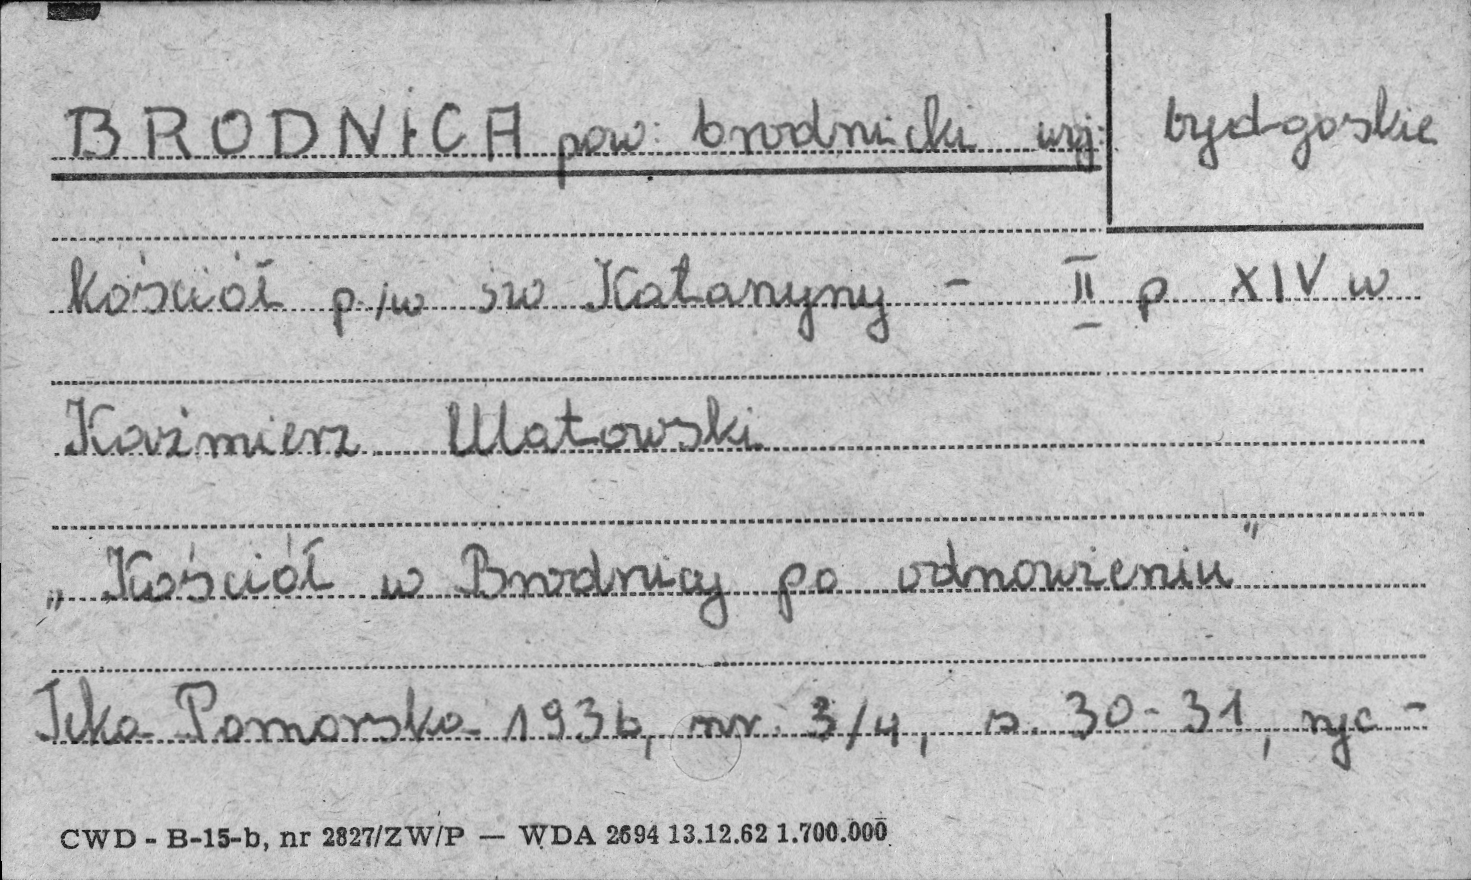 BRODNICA pow: brodnicki woj: bydgoskie
kościół p/w św Katarzyny - II p XIV w
Kaźmierz Ulatowski
„Kościół w Brodnicy po odnowieniu"
Teka Pomorska 1936, nr. 3/4, s. 30-31, ryc -
CWD - B-15-b, nr 2827/ZW/P — WDA 2694 13.12.62 1.700.000